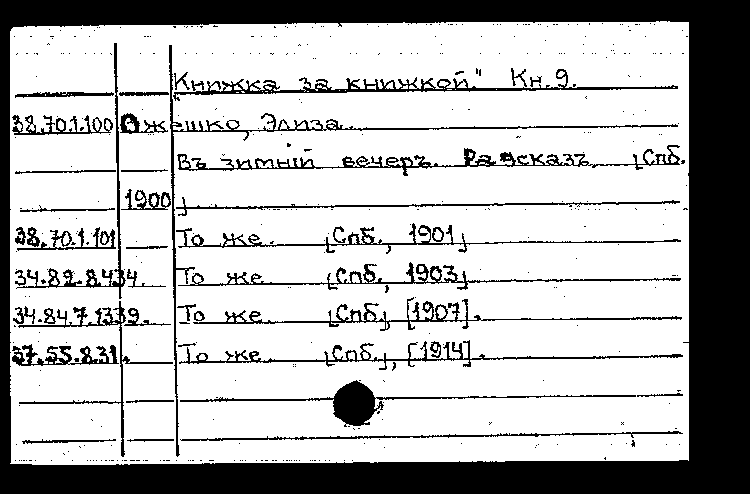 "Книжка за книжкой." Кн. 9.
38.70.1.100 Ожешко, Элиза.
Въ зимній вечеръ. Разсказъ. [Спб.
1900]
38.70.1.101 То же. [Спб., 1901]
34.82.8.434. То же. [Спб., 1903]
34.84.7.1339. То же. [Спб.], [1907].
37.55.8.31. То же. [Спб.], [1914].